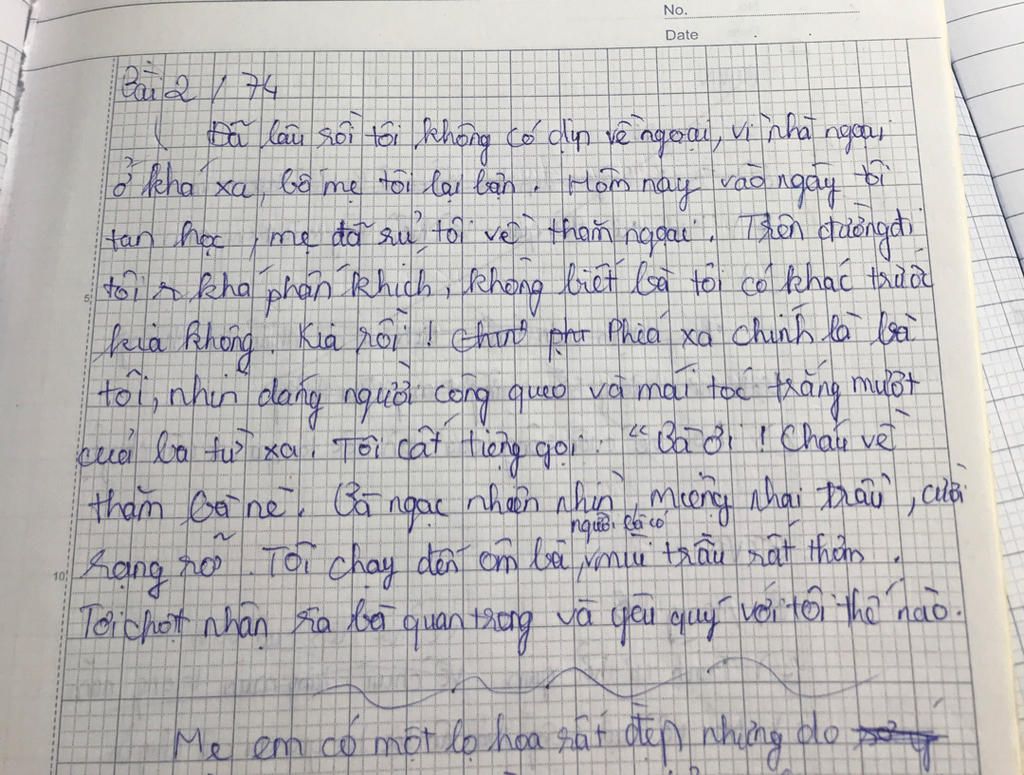 No.
Date
Bài 2 / 74
Đã lâu rồi tôi không có dịp về ngoại, vì nhà ngoại
ở khá xa, bố mẹ tôi lại bận. Hôm nay vào ngày tôi
tan học, mẹ đã rủ tôi về thăm ngoại. Trên đường đi
5 tôi khá phấn khích, không biết bà tôi có khác trước
kia không. Kia rồi! Phía xa chính là bà
tôi, nhìn dáng người còng queo và mái tóc trắng mướt
của bà từ xa. Tôi cất tiếng gọi: "Bà ơi! Cháu về
thăm bà nè. Bà ngạc nhiên nhìn, miệng nhai trầu, cười
người bà có
10 rạng rỡ. Tôi chạy đến ôm bà, mùi trầu rất thơm.
Tôi chợt nhận ra bà quan trọng và yêu quý với tôi thế nào.
Mẹ em có một lọ hoa rất đẹp nhưng do